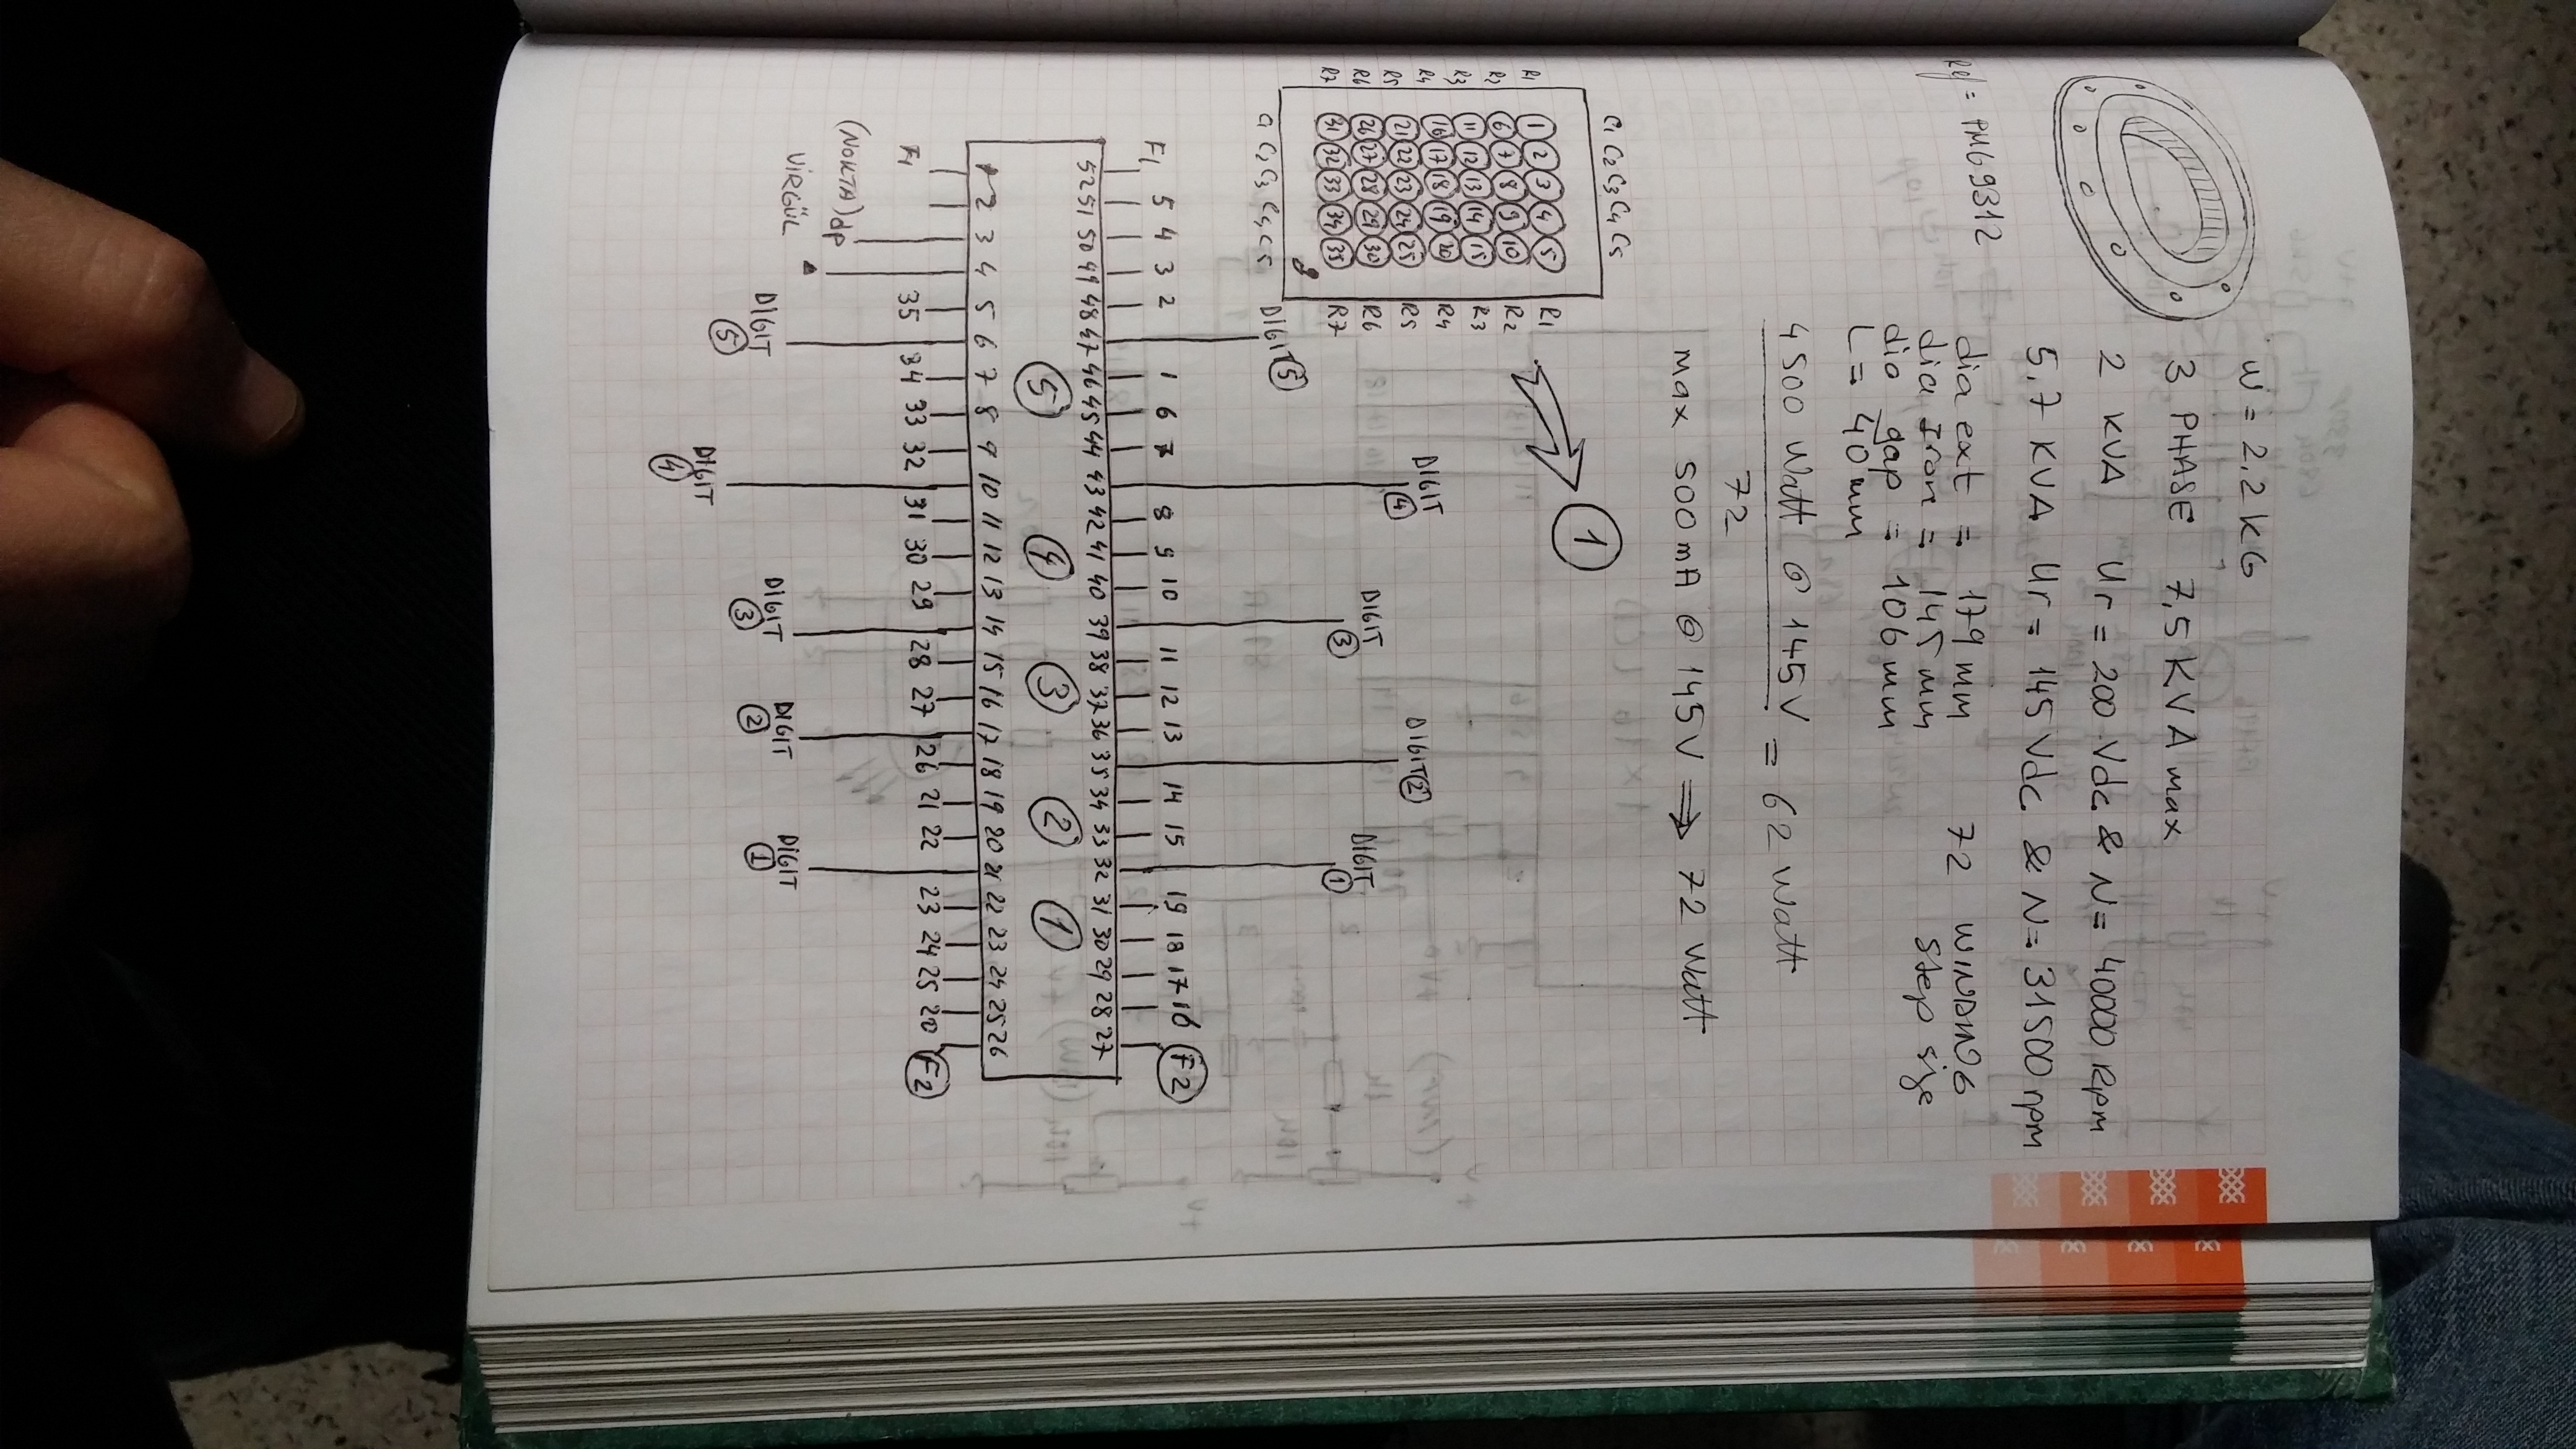 W = 2,2 KG
3 PHASE 7,5 KVA max
2 KVA Ur = 200 Vdc & N = 40000 Rpm
5,7 KVA Ur = 145 Vdc & N = 31500 rpm
Ref = PMG9312
dia ext = 179 mm 72 WINDING
dia Iron = 145 mm Step size
dia gap = 106 mm
L = 40 mm
4500 Watt @ 145V = 62 Watt
72
max 500 mA @ 145V ⇒ 72 Watt
C1 C2 C3 C4 C5
1
R1 1 2 3 4 5 R1
R2 6 7 8 9 10 R2
R3 11 12 13 14 15 R3
R4 16 17 18 19 20 R4
R5 21 22 23 24 25 R5
R6 26 27 28 29 30 R6
R7 31 32 33 34 35 R7
C1 C2 C3 C4 C5
DIGIT 5
DIGIT 4
DIGIT 3
DIGIT 2
DIGIT 1
F1 5 4 3 2 1 6 7 8 9 10 11 12 13 14 15 19 18 17 16 F2
52 51 50 49 48 47 46 45 44 43 42 41 40 39 38 37 36 35 34 33 32 31 30 29 28 27
5 4 3 2 1
1 2 3 4 5 6 7 8 9 10 11 12 13 14 15 16 17 18 19 20 21 22 23 24 25 26
F1 35 34 33 32 31 30 29 28 27 26 21 22 23 24 25 20 F2
(NOKTA) dp
VİRGÜL
DIGIT 5
DIGIT 4
DIGIT 3
DIGIT 2
DIGIT 1